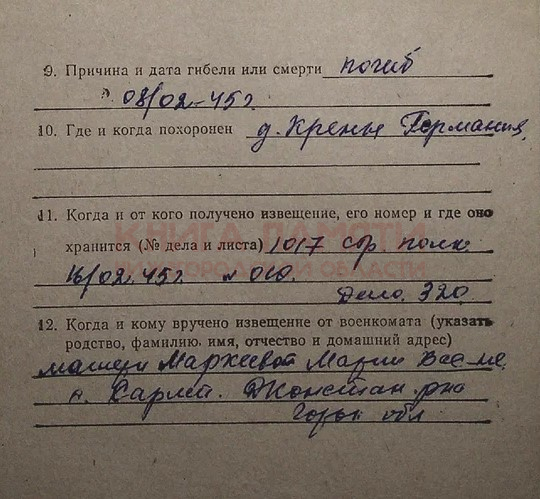 9. Причина и дата гибели или смерти погиб
08/02-45г.
10. Где и когда похоронен д. Кренье Германия,
11. Когда и от кого получено извещение, его номер и где оно
КНИГА ПАМЯТИ
хранится (№ дела и листа) 1017 стр. полк
НИЖЕГОРОДСКОЙ ОБЛАСТИ
16/02.45г. № 010.
Дело. 320
12. Когда и кому вручено извещение от военкомата (указать
родство, фамилию, имя, отчество и домашний адрес)
матери Маркеевой Марии
Сарлей. Дконстан. рна
Горьк обл